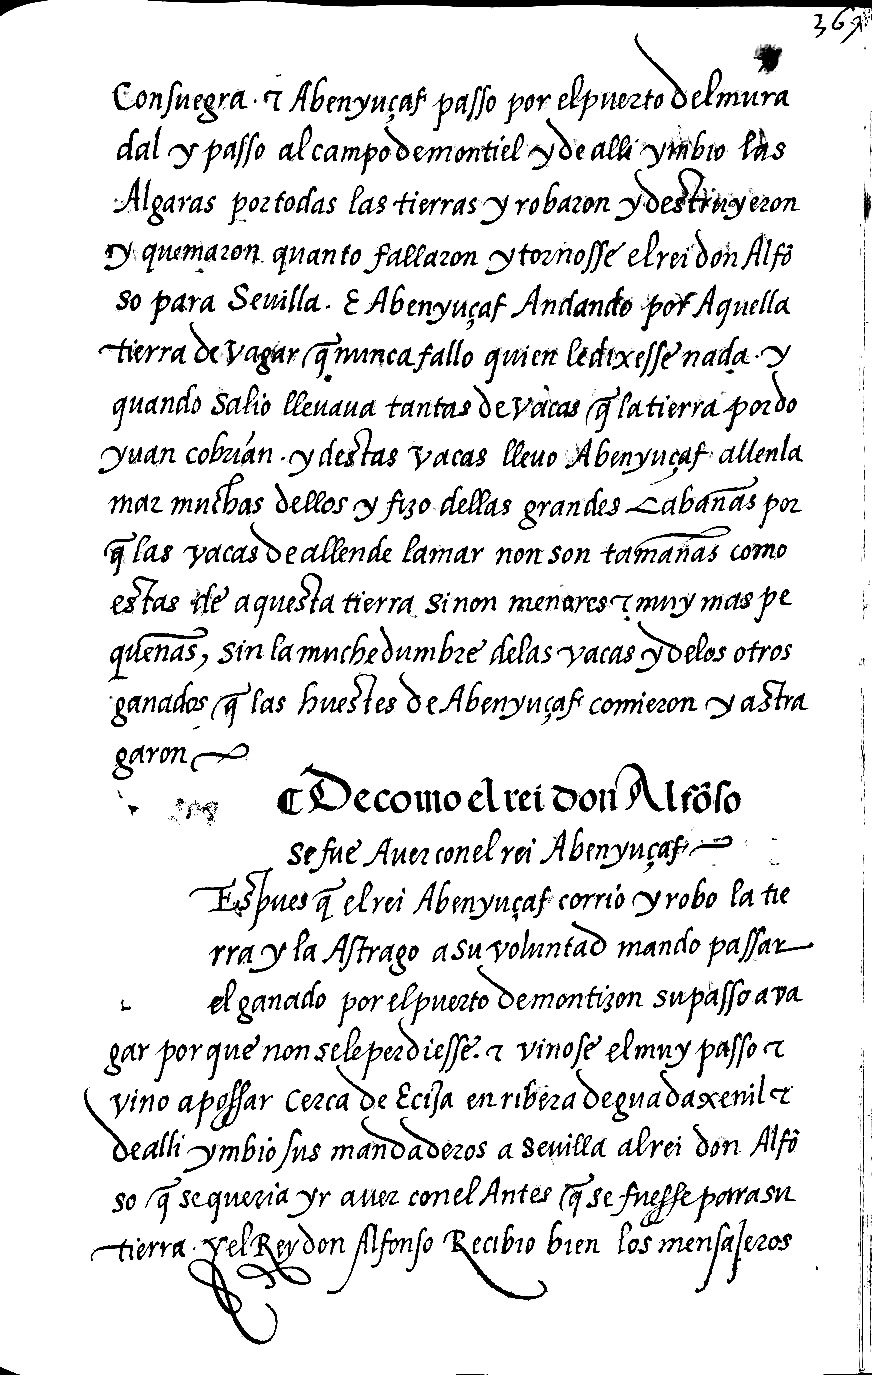 369
Consuegra. ⁊ Abenyuçaf passo por el puerto del mura
dal y passo al campo de montiel y de alli ymbio las
Algaras por todas las tierras y robaron y destruyeron
y quemaron quanto fallaron y tornosse el rei don Alfõ
so para Sevilla. E Abenyuçaf Andando por Aquella
tierra de vagar q̃ nunca fallo quien le dixesse nada. y
quando salio llevava tantas de vacas q̃ la tierra por do
yvan cobrian. y destas vacas llevo Abenyuçaf allenla
mar muchas dellos y fizo dellas grandes Cabañas por
q̃ las vacas de allende la mar non son tamañas como
estas de aquesta tierra sinon menores ⁊ muy mas pe
queñas, sin la muchedumbre de las vacas y de los otros
ganados q̃ las huestes de Abenyuçaf comieron y astra
garon
¶ De como el rei don Alfõso
se fue Aver con el rei Abenyuçaf
Espues q̃ el rei Abenyuçaf corrio y robo la tie
rra y la Astrago a su voluntad mando passar
el ganado por el puerto de montizon su passo a va
gar por que non se le perdiesse. ⁊ vinose el muy passo ⁊
vino a possar Cerca de Ecija en ribera de guadaxenil ⁊
de alli ymbio sus mandaderos a Sevilla al rei don Alfõ
so q̃ se queria yr a ver con el Antes q̃ se fuesse para su
tierra. y el Rey don Alfonso Recibio bien los mensajeros